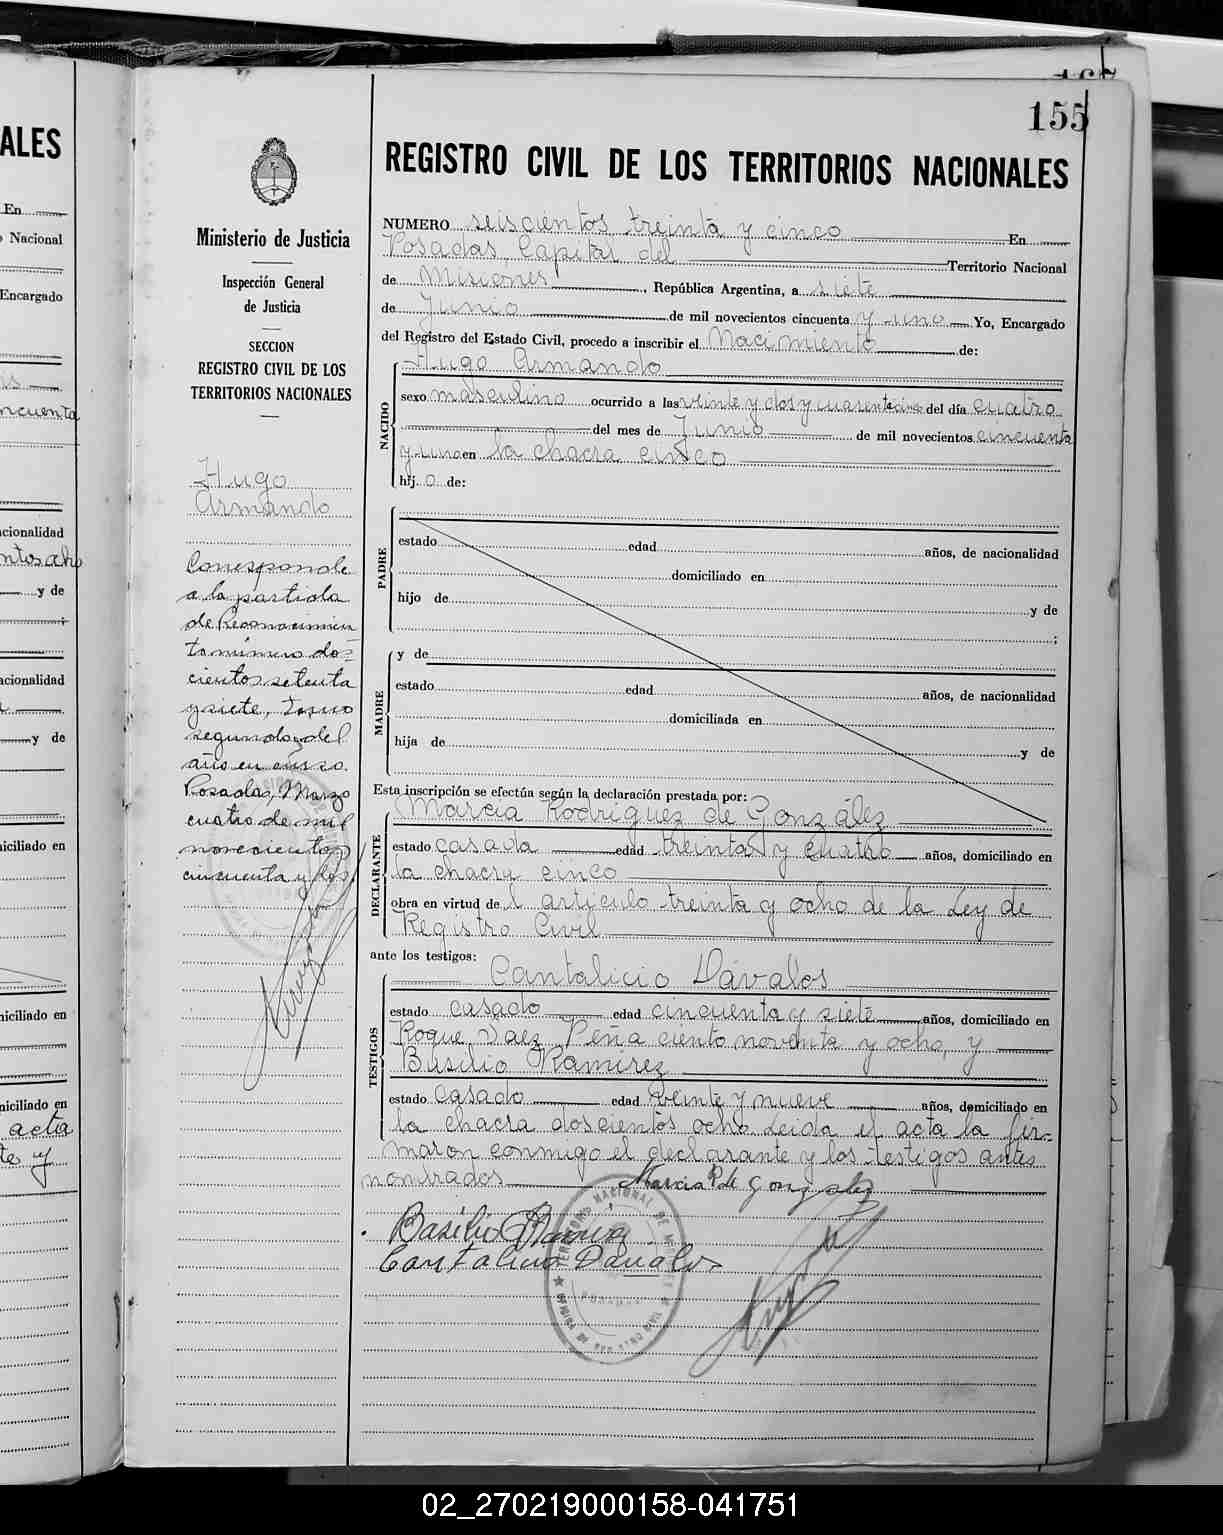 155
REGISTRO CIVIL DE LOS TERRITORIOS NACIONALES
Ministerio de Justicia
Inspección General
de Justicia
SECCION
REGISTRO CIVIL DE LOS
TERRITORIOS NACIONALES
Hugo
Armando
Corresponde
a la partida
de Reconocimien
to número dos-
cientos setenta
y siete, tomo
segundo del
año en curso.
Posadas, Marzo
cuatro de mil
novecientos
cincuenta y dos.
NUMERO seiscientos treinta y cinco En
Posadas, Capital del Territorio Nacional
de Misiones, República Argentina, a siete
de Junio de mil novecientos cincuenta y uno Yo, Encargado
del Registro del Estado Civil, procedo a inscribir el Nacimiento de:
Hugo Armando
NACIDO
sexo masculino ocurrido a las veinte y dos y cuarenta cinco del día cuatro
del mes de Junio de mil novecientos cincuenta
y uno en la chacra cinco
hij o de:
PADRE
estado edad años, de nacionalidad
domiciliado en
hijo de y de
;
MADRE
y de
estado edad años, de nacionalidad
domiciliada en
hija de y de
Esta inscripción se efectúa según la declaración prestada por:
Marcia Rodríguez de González
DECLARANTE
estado casada edad treinta y cuatro años, domiciliado en
la chacra cinco
obra en virtud de l artículo treinta y ocho de la Ley de
Registro Civil
ante los testigos:
Cantalicio Dávalos
TESTIGOS
estado casado edad cincuenta y siete años, domiciliado en
Roque Saez Peña ciento noventa y ocho, y
Basilio Ramirez
estado casado edad veinte y nueve años, domiciliado en
la chacra doscientos ocho. Leida el acta la fir-
maron conmigo el declarante y los testigos antes
nombrados
Marcia R de Gonzalez
Basilio Ramirez
Cantalicio Davalos
ALES
En
Nacional
Encargado
cincuenta
nacionalidad
y de
nacionalidad
y de
domiciliado en
domiciliado en
domiciliado en
acta
te y
02_270219000158-041751